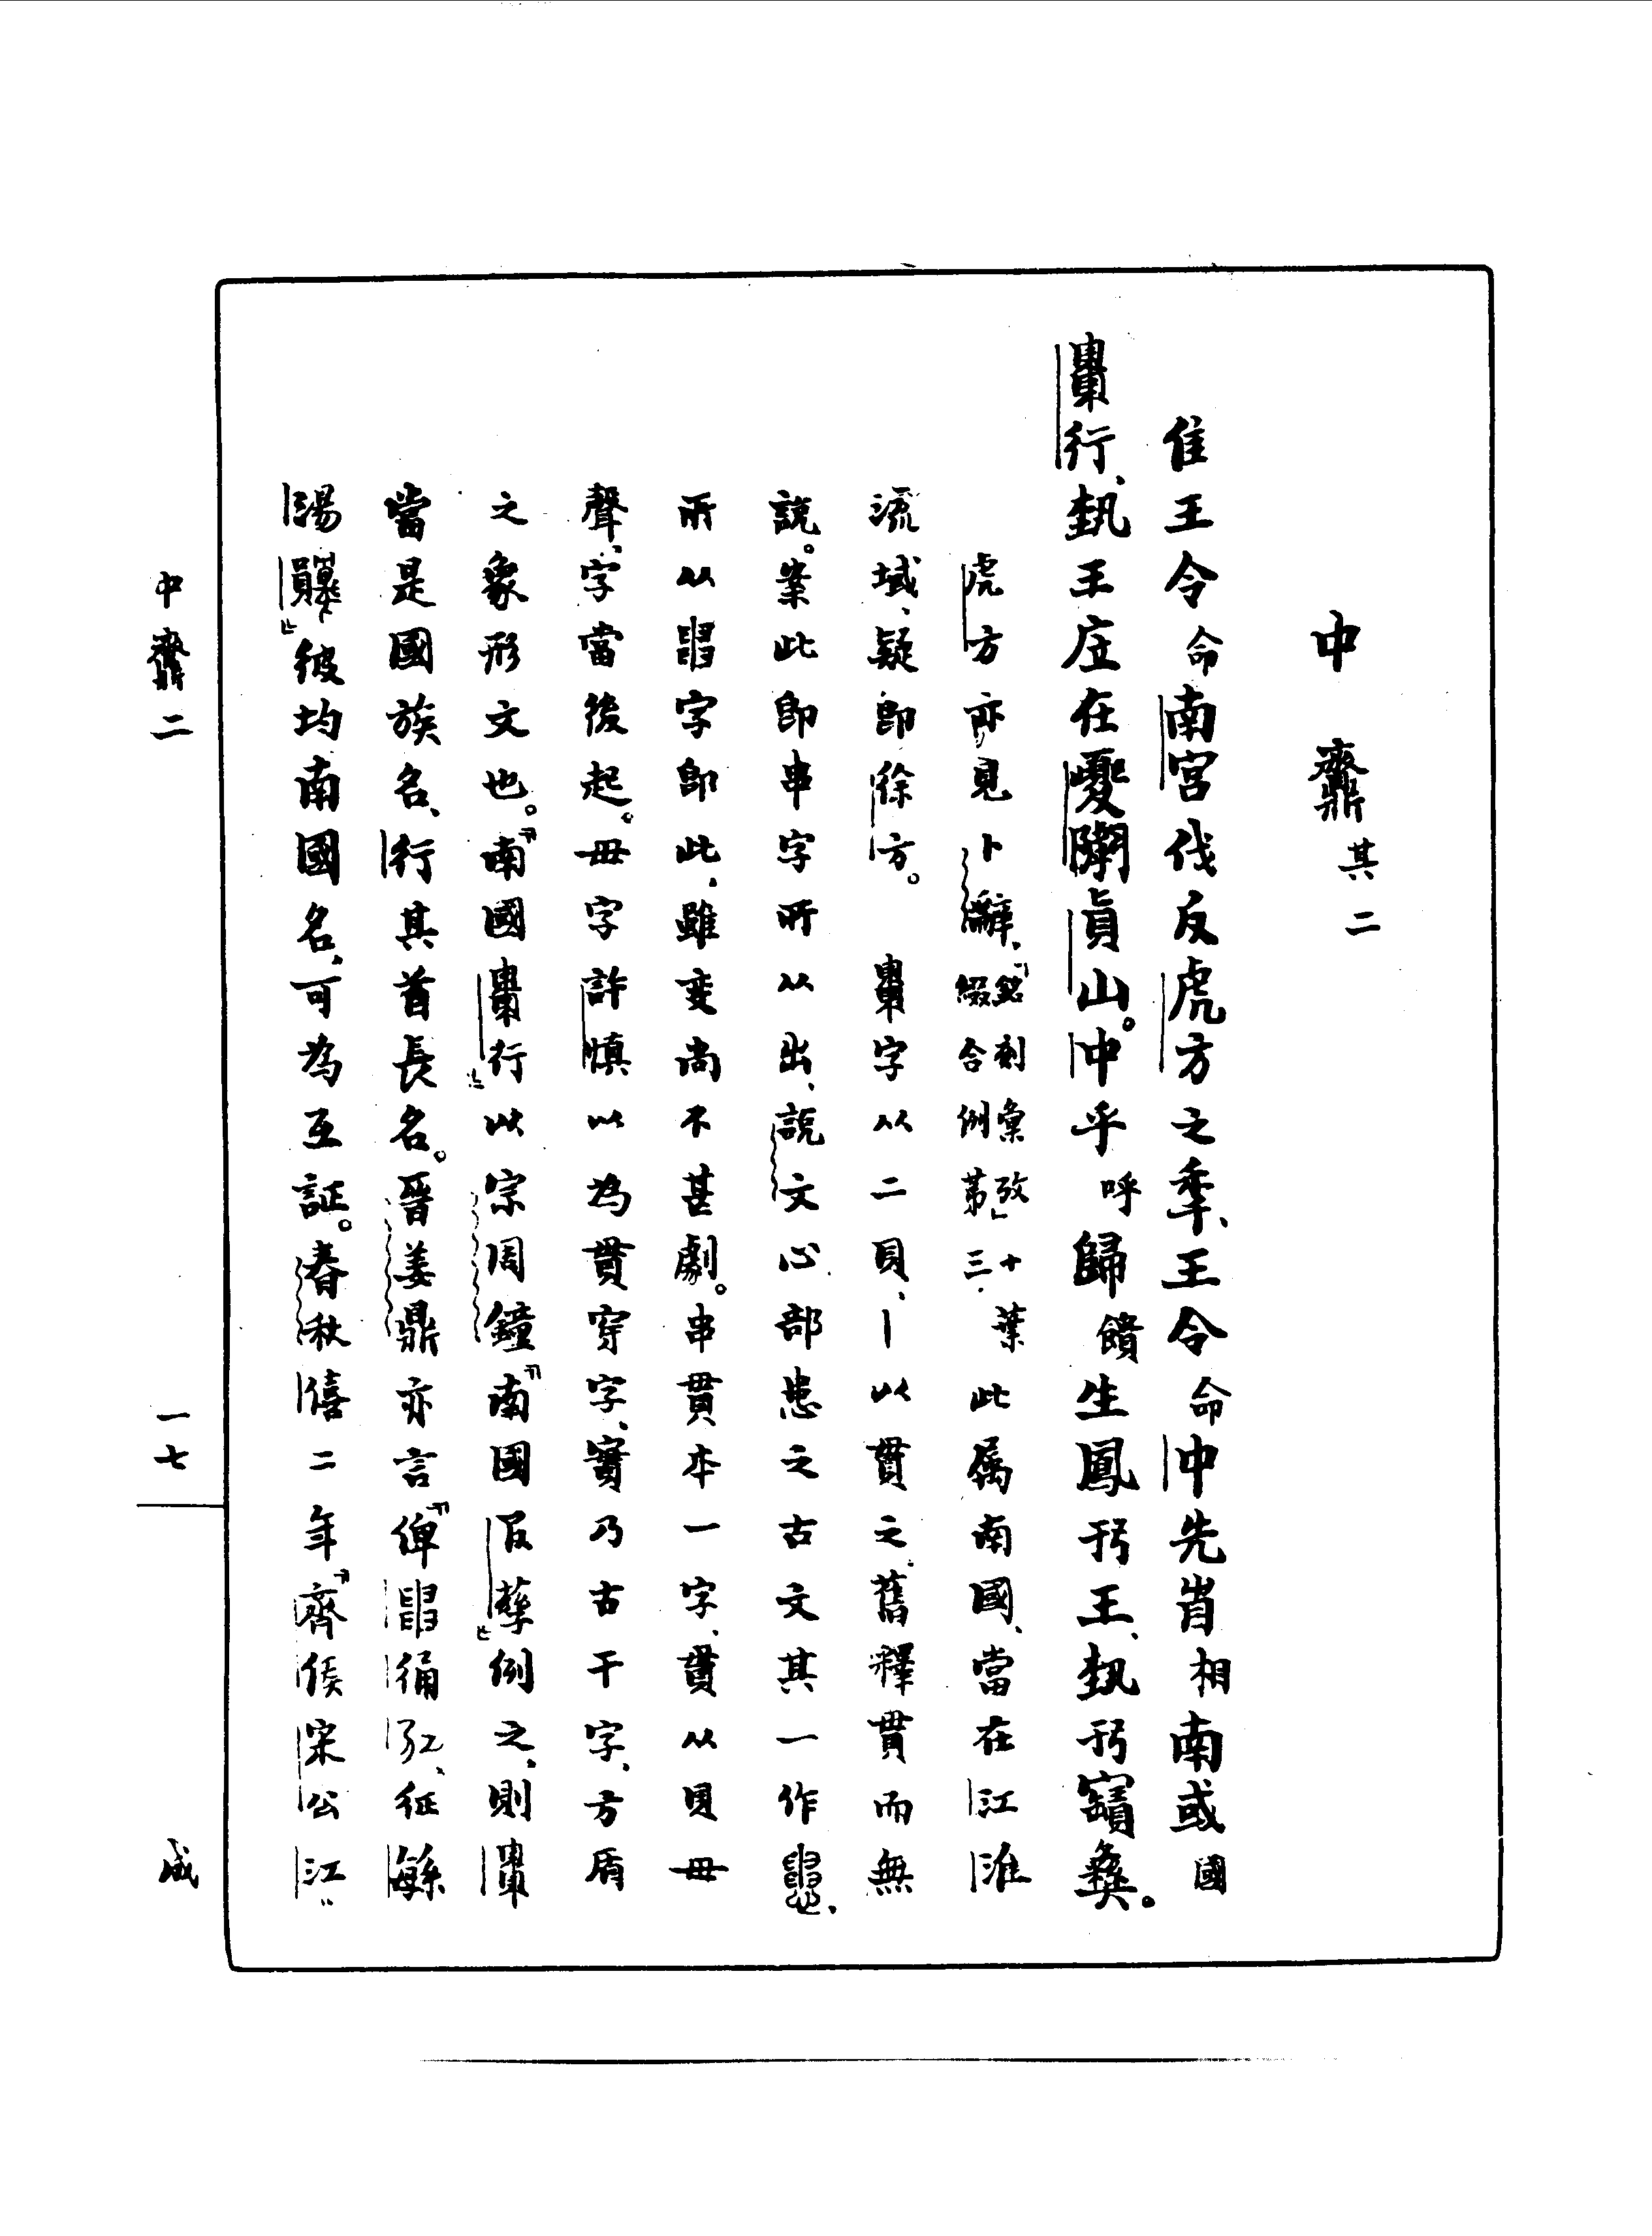 中齋鼎其二
隹王令命南宮伐反虎方之年、王令命中先眚相南或國
行、埶王㕇在夔𨺩貞山。中乎呼歸饋生鳳于王、埶于寶彝。
虎方亦見卜辭、「銘刻彙攷」十葉綴合例第三、此属南國、當在江淮
流域、疑即徐方。字从二貝、丨以貫之、舊釋貫而無
說。案此即串字所从出、說文心部患之古文其一作、
所从字即此、雖变尚不甚劇。串貫本一字、貫从貝毌
聲、字當後起。毌字許慎以為貫穿字、實乃古干字、方盾
之象形文也。『南國行』以宗周鐘『南國𠬝孳』例之、則
當是國族名、行其酋長名。晉姜鼎亦言『俾徟弘、征緐
湯』彼均南國名、可為互証。春秋僖二年『齊侯宋公江
中齋二
一七
咸